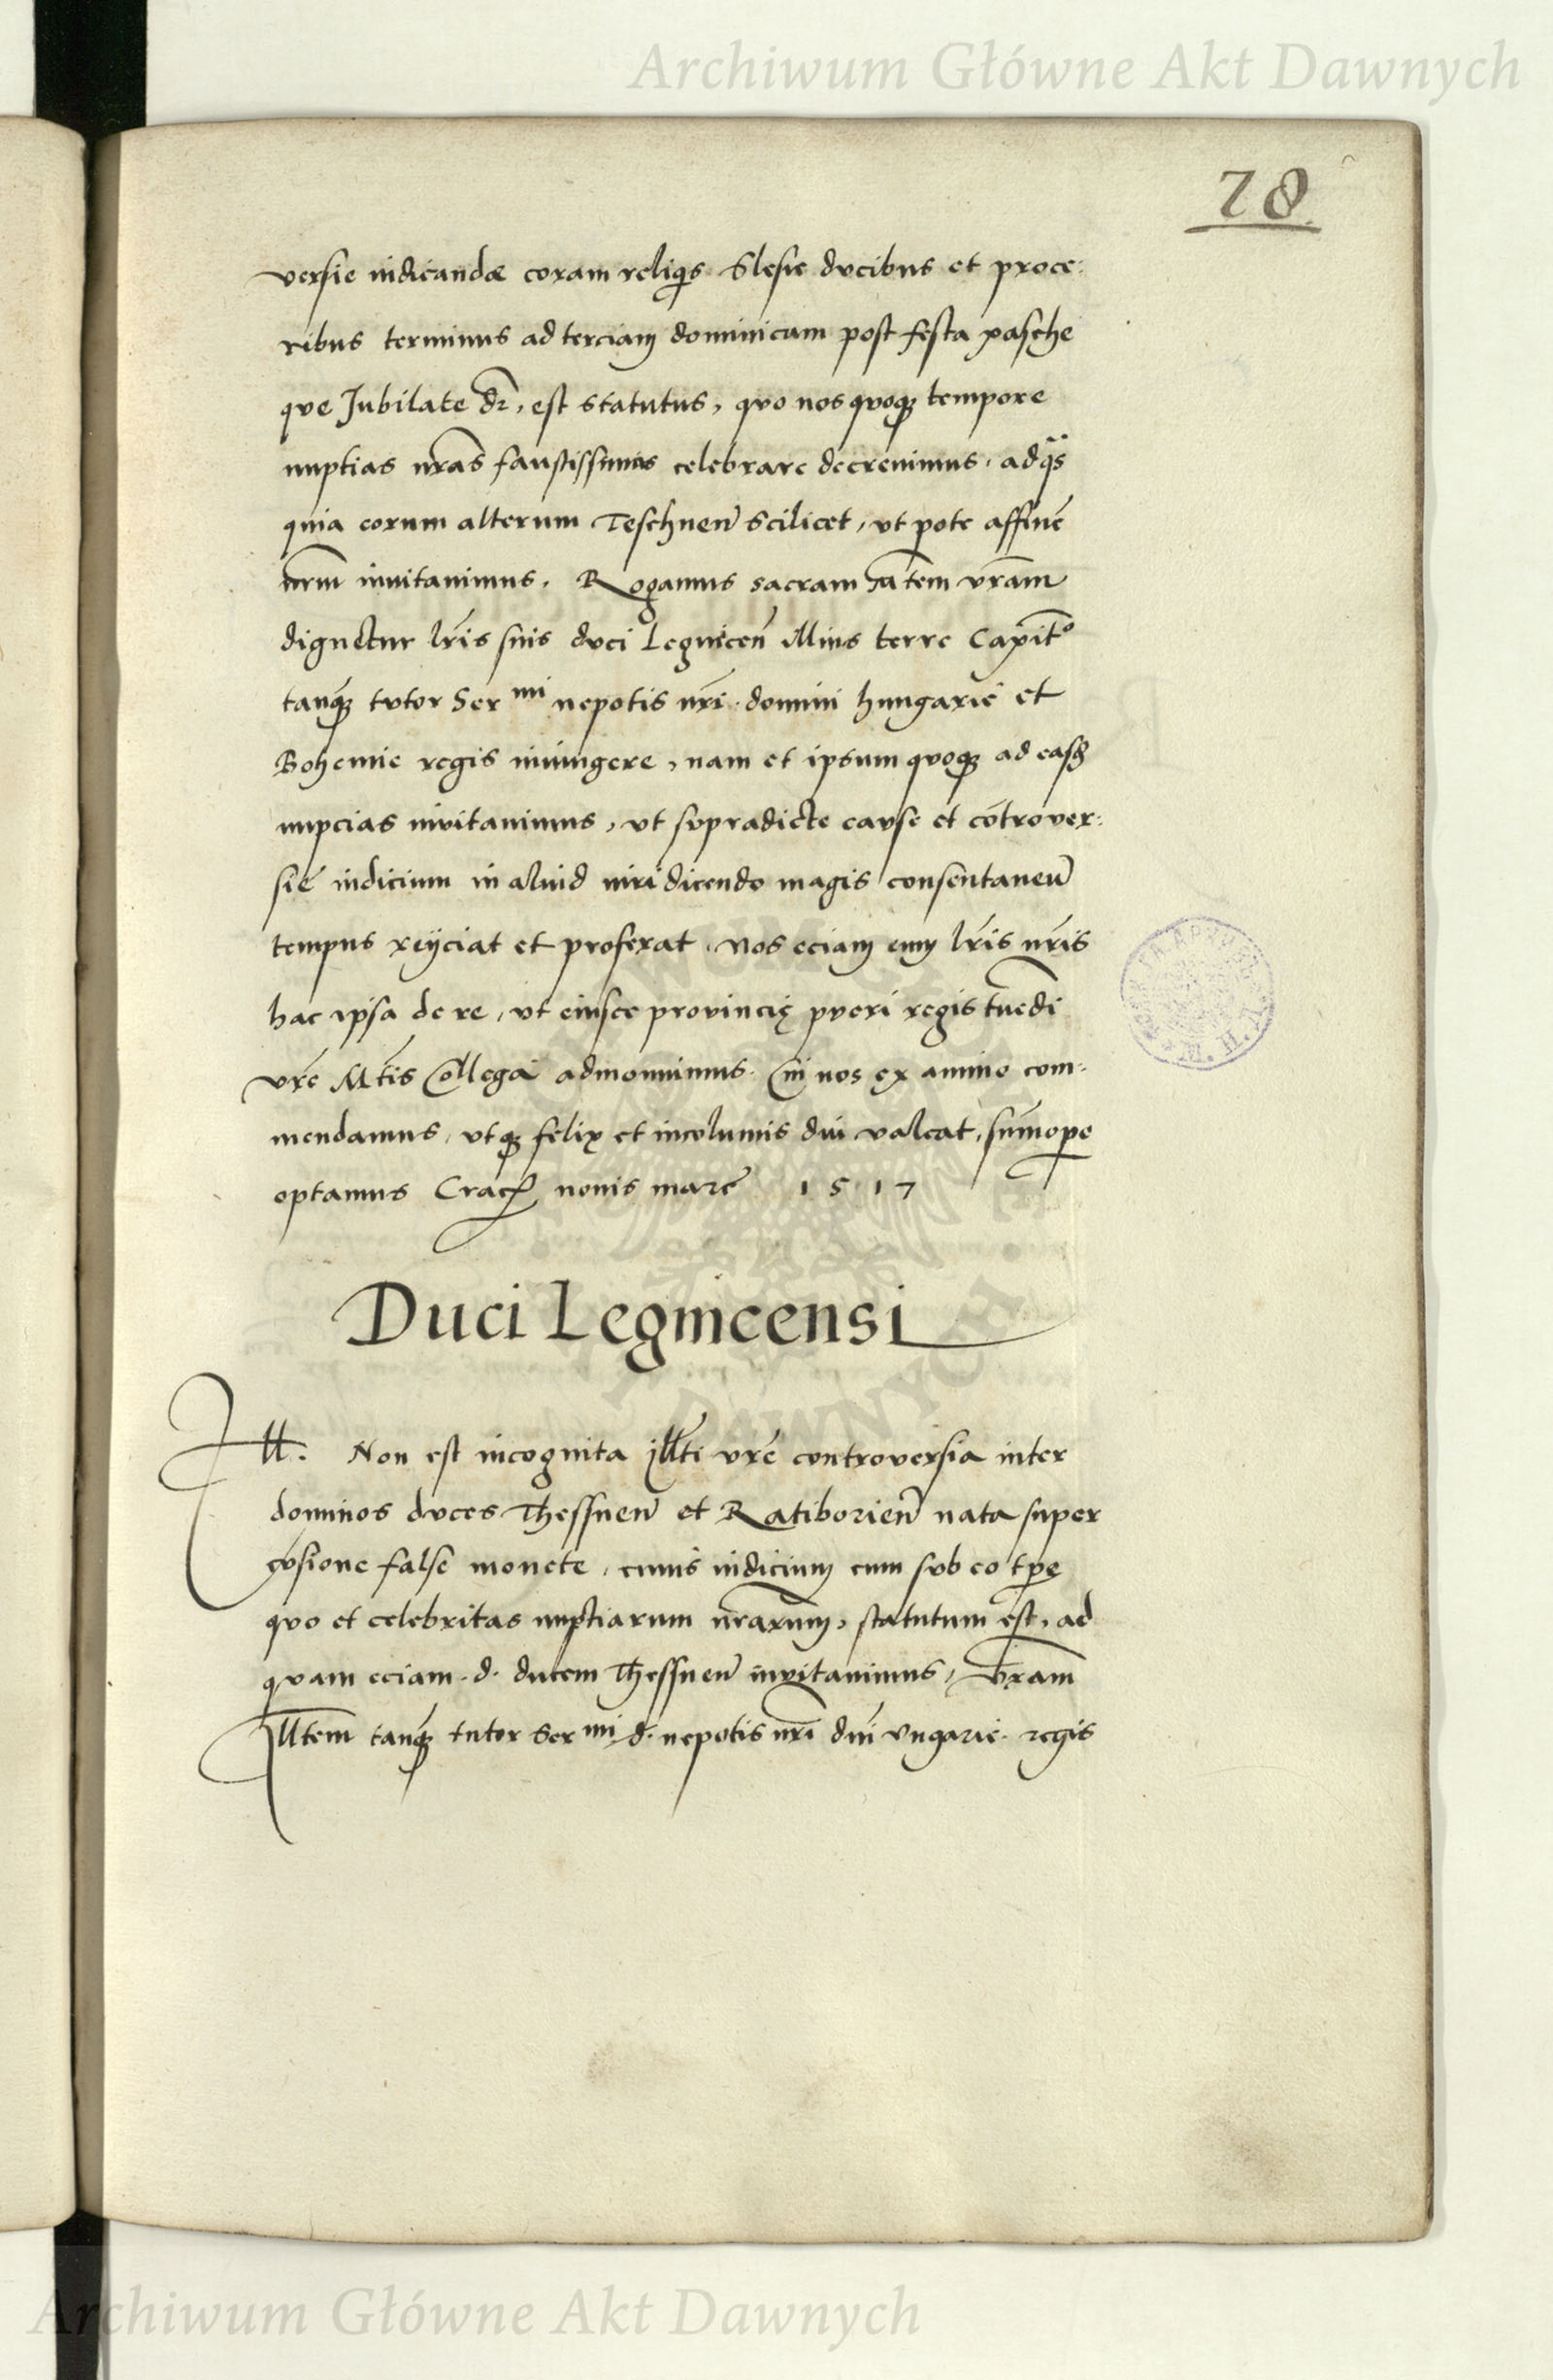 Archiwum Główne Akt Dawnych
28
versie iudicandæ coram reliq͛s Slesie ducibus et proce:
ribus terminus ad terciam dominicam post festa pasche
que Jubilate dr̄, est statutus, quo nos quoq; tempore
nuptias nr̄as faustissimas celebrare decreuimus, ad q̈s
quia eorum alterum Teschnen̄ scilicet, ut pote affinē
nr̄m inuitauimus. Rogamus sacram M̄tem vr̄am
dignetur lr̄is suis duci Legnicen̄ illius terre Capit̄o
tanq̄; tutor Ser mi nepotis nr̄i domini hungarie et
Bohemie regis iniungere, nam et ipsum quoq; ad easd̄
nupcias inuitauimus, ut supradicte cause et cōtrover:
sie iudicium in aliud iuri dicendo magis consentaneū
tempus reijciat et proferat. Nos eciam eum lr̄is nr̄is
hac ipsa de re, ut eiusce provincię pueri regis tuēdi
vr̄e M̄tis Collega admonuimus. Cui nos ex animo com:
mendamus, utq; felix et incolumis diu valeat, sum̄ope
optamus Crac̄ nonis marc̄ 1517
Duci Legnicensi
Ill. Non est incognita Ill̄ti vr̄e controversia inter
dominos duces Thessnen̄ et Ratiborien̄ nata super
cusione false monete, cuius iudicium cum sub eo tp̄e
quo et celebritas nuptiarum nr̄arum, statutum est, ad
quam eciam .d. ducem Thessnen̄ invitauimus, vr̄am
Ill̄tem tanq̄; tutor Ser mi d. nepotis nr̄i dn̄i Ungarie. regis
Archiwum Główne Akt Dawnych